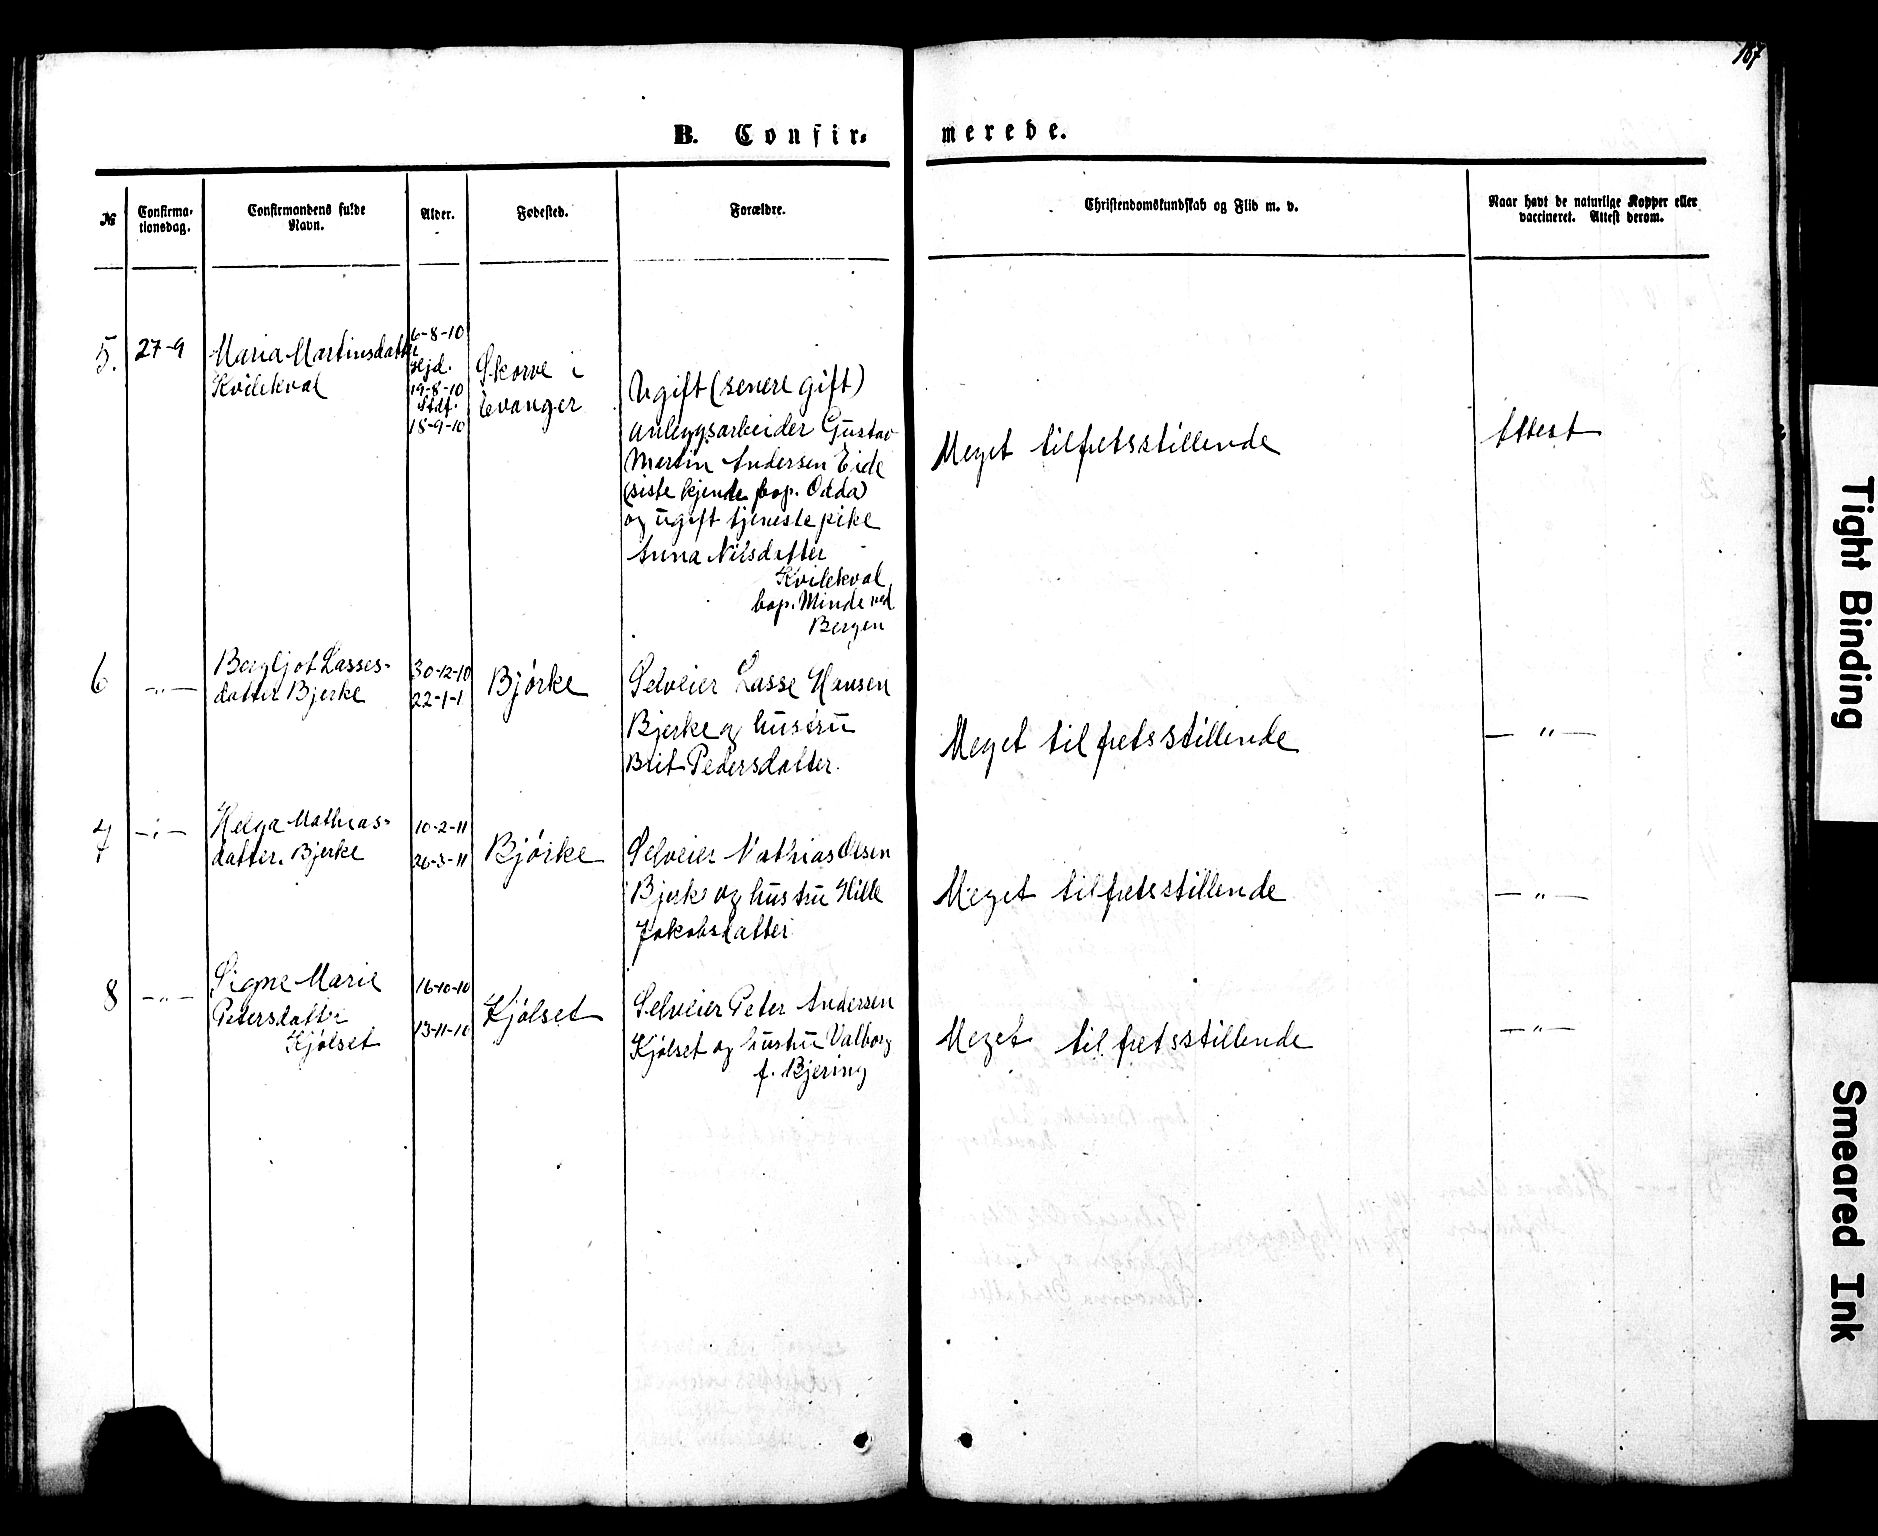 167
B. Confir-
merede.
№
Confirma-
tionsdag.
Confirmandens fulde
Navn.
Alder.
Fødested.
Forældre.
Christendomskundskab og Flid m. v.
Naar havt de naturlige Kopper eller
vaccineret. Attest derom.
5.
27-9
Maria Martinsdatter
Kvilekval
6-8-10
Hjd.
19-8-10
Stdf.
18-9-10
Skorve i
Evanger
Ugift (senere gift)
anleggsarbeider Gustav
Martin Andersen Eide
(siste kjende bop. Odda)
og ugift tjenestepike
Anna Nilsdatter
Kvilekval
bop. Minde ved
Bergen
Meget tilfretsstillende
Attest
6
-"-
Bergljot Lasses-
datter Bjerke
30-12-10
22-1-1
Bjørke
Selveier Lasse Hansen
Bjerke og hustru
Brit Pedersdatter.
Meget tilfretsstillende
-"-
7
-"-
Helga Mathias-
datter. Bjerke
10-2-11
26-3-11
Bjørke
Selveier Mathias Olsen
Bjerke og hustru Hille
Jakobsdatter
Meget tilfretsstillende
-"-
8
-"-
Signe Marie
Petersdatter
Kjølset
16-10-10
13-11-10
Kjølset
Selveier Peter Andersen
Kjølset og hustru Valborg
f. Bjering
Meget tilfretsstillende
-"-
Tight Binding
Smeared Ink